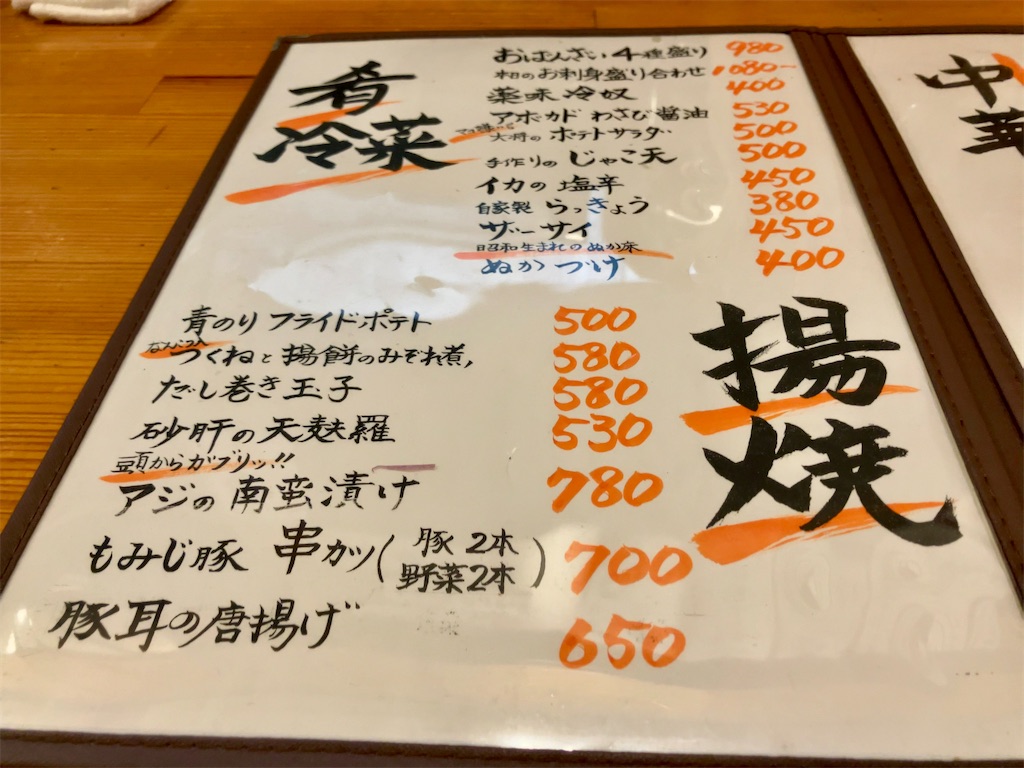 肴
冷菜
おばんざい4種盛り 980
本日のお刺身盛り合わせ 1080-
薬味冷奴 400
アボカド わさび醤油 530
大将の ポテトサラダ 500
手作りの じゃこ天 500
イカの 塩辛 450
自家製 らっきょう 380
ザーサイ 450
昭和生まれのぬか床
ぬかづけ 400
揚
焼
青のり フライドポテト 500
なんこつ入
つくねと 揚餅のみぞれ煮 580
だし巻き玉子 580
砂肝の天麩羅 530
頭からガブリッ!!
アジの南蛮漬け 780
もみじ豚 串カツ(豚2本 野菜2本) 700
豚耳の唐揚げ 650
中
華